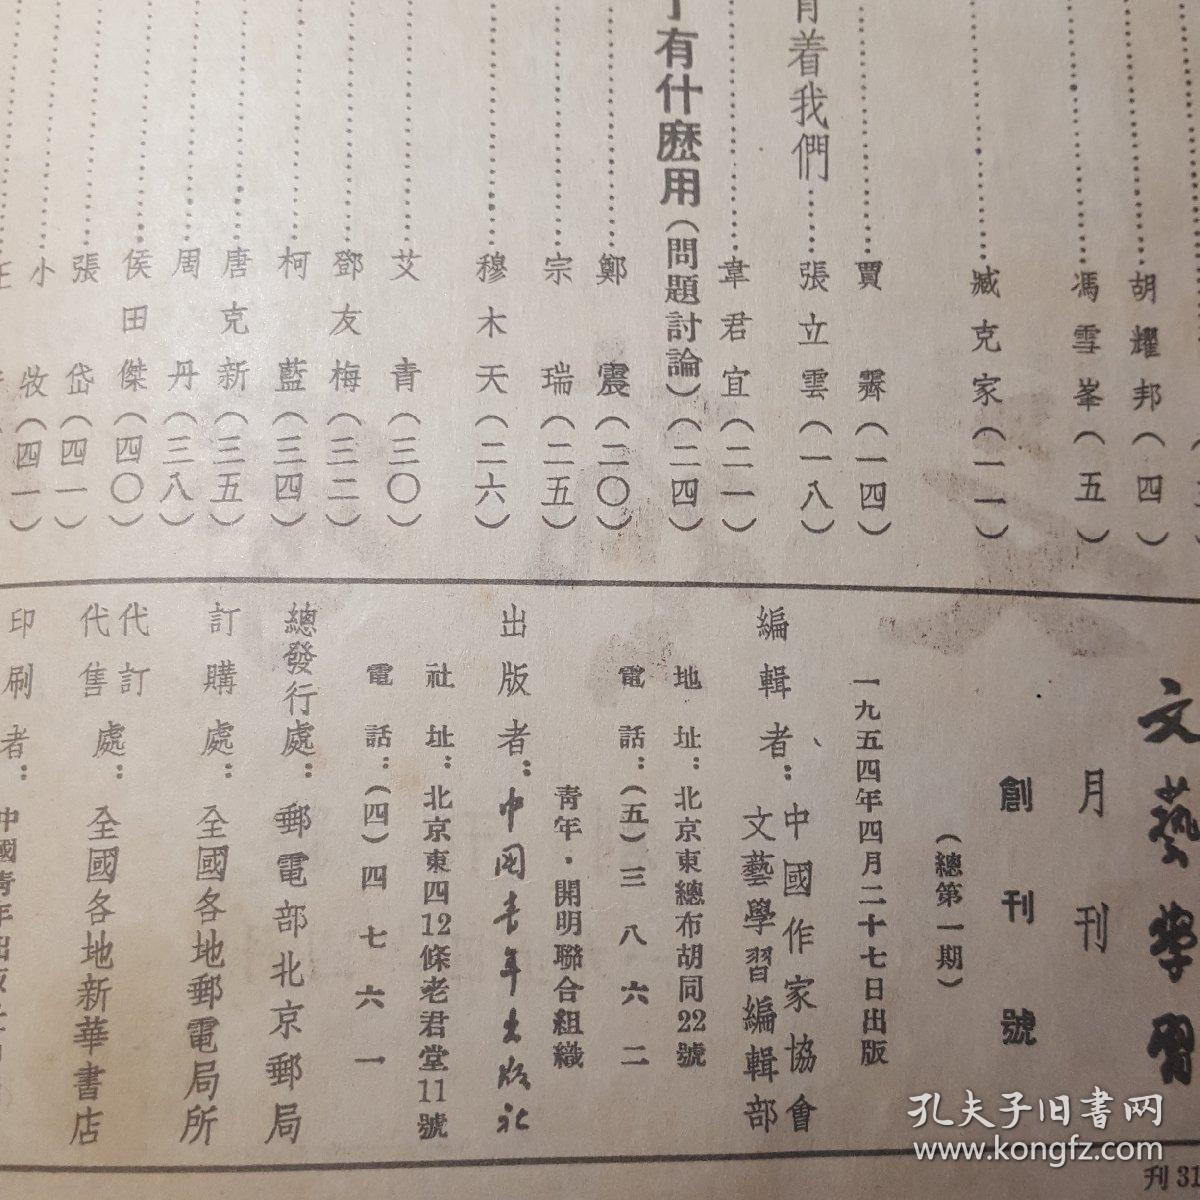 胡耀邦(四)
馮雪峯(五)
臧克家(一一)
賈霽(一四)
着我們
張立雲(一八)
韋君宜(二一)
有什麽用(問題討論)(二四)
鄭震(二〇)
宗瑞(二五)
穆木天(二六)
艾青(三〇)
鄧友梅(三二)
柯藍(三四)
唐克新(三五)
周丹(三八)
侯田傑(四〇)
張岱(四一)
小牧(四一)
文藝學習
月刊
創刊號
(總第一期)
一九五四年四月二十七日出版
編輯者:中國作家協會
文藝學習編輯部
地址:北京東總布胡同22號
電話:(五)三八六二
青年·開明聯合組織
出版者:中国青年出版社
社址:北京東四12條老君堂11號
電話:(四)四七六一
總發行處:郵電部北京郵局
訂購處:全國各地郵電局所
代訂
代售處:全國各地新華書店
印刷者:中國青年出版
刊31
孔夫子旧书网
www.kongfz.com